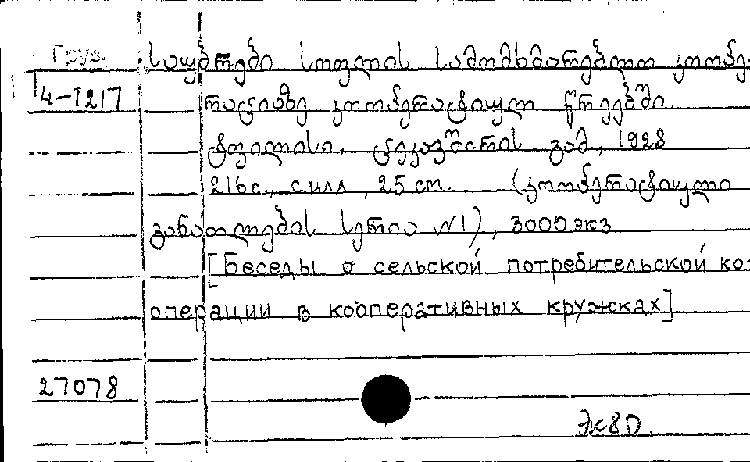 Груз.
საუბრები სოფლის სამომხმარებლო კოოპე-
14-1217
რაციაზე კოოპერატიულ წრეებში.
ტფილისი, ცეკავშირის გამ., 1928
216 с., с илл., 25 см. (კოოპერატიული
განათლების სერია №1), 3000 экз
[Беседы о сельской потребительской ко-
операции в кооперативных кружках]
27078